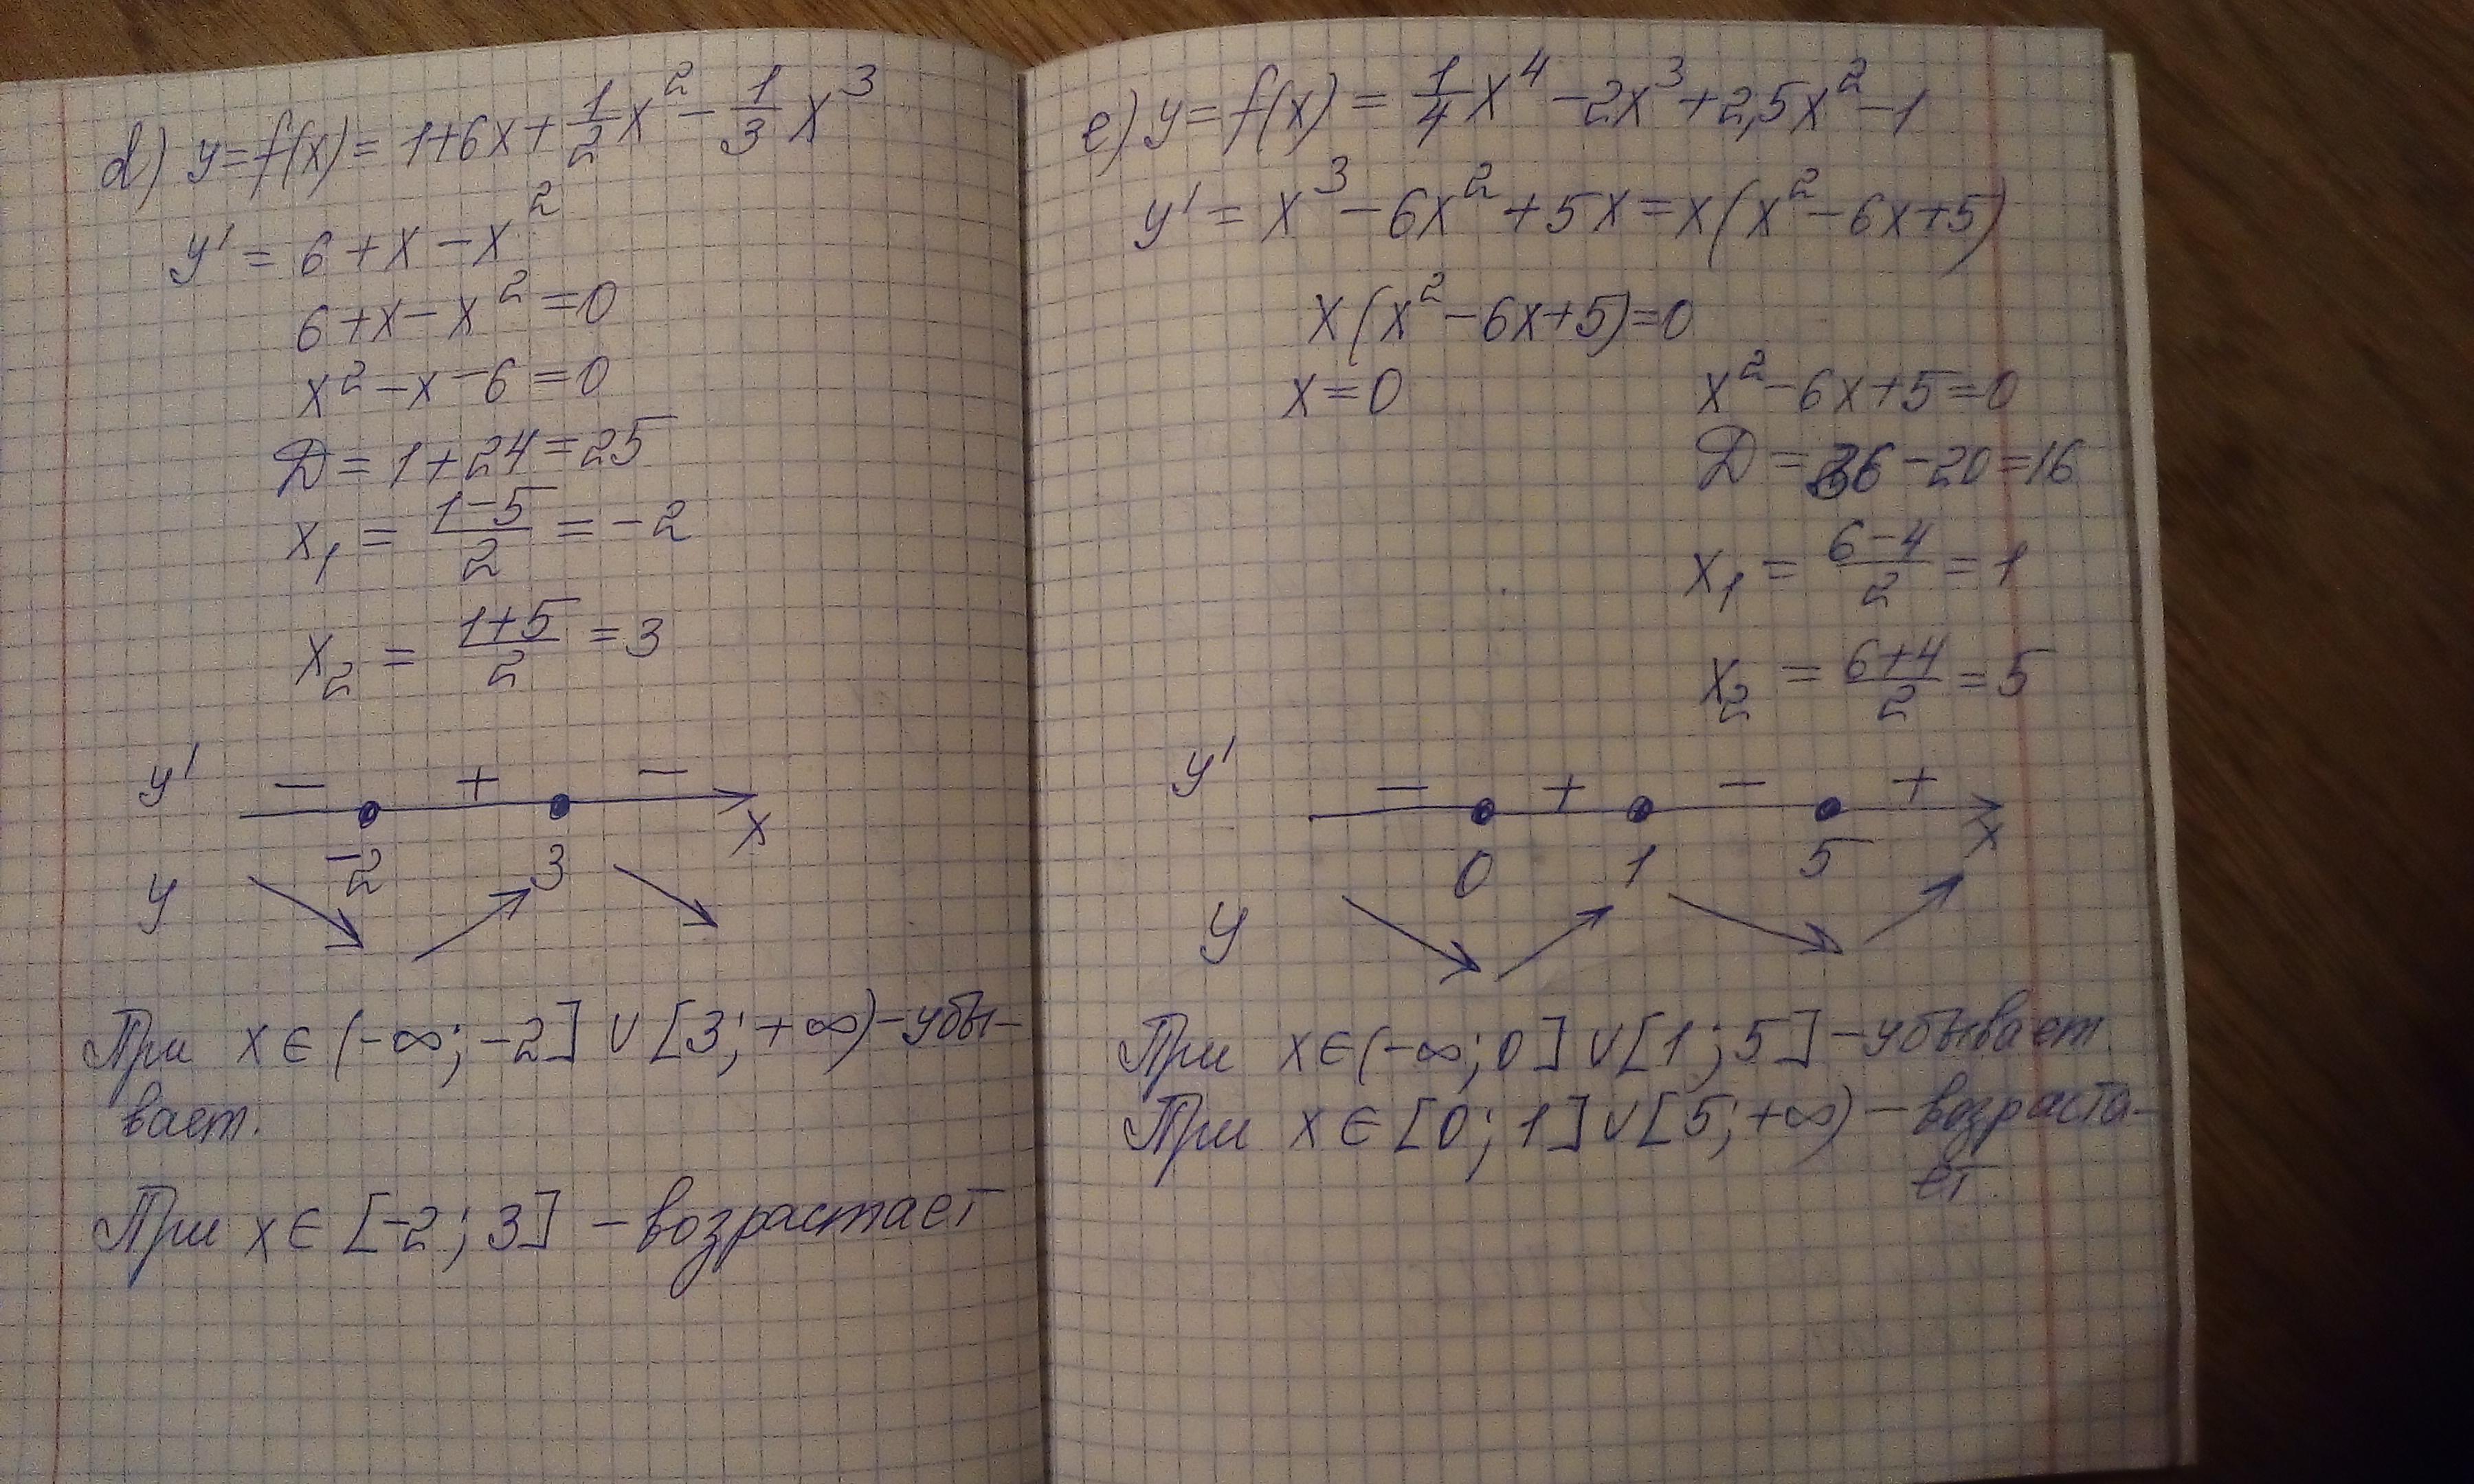 d) y=f(x)= 1+6x+1/2x²-1/3x³
y'=6+x-x²
6+x-x²=0
x²-x-6=0
D=1+24=25
x₁=(1-5)/2=-2
x₂=(1+5)/2=3
y' - + -
-2 3 x
y
При x∈(-∞;-2]∪[3;+∞)-убы-
вает.
При x∈[-2;3] -возрастает
e) y=f(x)=1/4x⁴-2x³+2,5x²-1
y'=x³-6x²+5x=x(x²-6x+5)
x(x²-6x+5)=0
x=0 x²-6x+5=0
D=36-20=16
x₁=(6-4)/2=1
x₂=(6+4)/2=5
y' - + - +
0 1 5 x
y
При x∈(-∞;0]∪[1;5]-убывает.
При x∈[0;1]∪[5;+∞)-возраста-
ет.